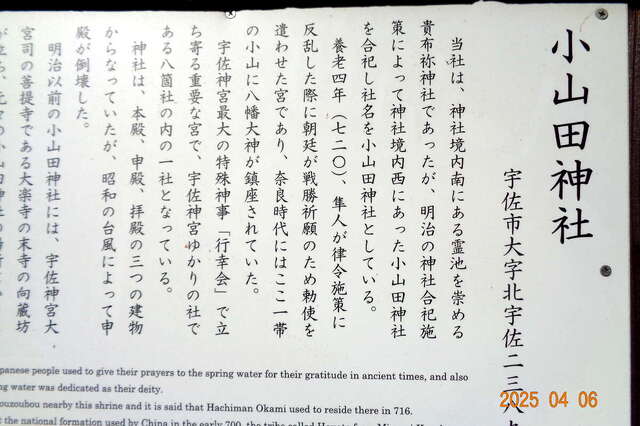 小山田神社
宇佐市大字北宇佐二三八
当社は、神社境内南にある霊池を崇める
貴布祢神社であったが、明治の神社合祀施
策によって神社境内西にあった小山田神社
を合祀し社名を小山田神社としている。
養老四年（七二〇）、隼人が律令施策に
反乱した際に朝廷が戦勝祈願のため勅使を
遣わせた宮であり、奈良時代にはここ一帯
の小山に八幡大神が鎮座されていた。
宇佐神宮最大の特殊神事「行幸会」で立
ち寄る重要な宮で、宇佐神宮ゆかりの社で
ある八箇社の内の一社となっている。
神社は、本殿、申殿、拝殿の三つの建物
からなっていたが、昭和の台風によって申
殿が倒壊した。
明治以前の小山田神社には、宇佐神宮大
宮司の菩提寺である大楽寺の末寺の向蔵坊
apanese people used to give their prayers to the spring water for their gratitude in ancient times, and also
ng water was dedicated as their deity.
ouzoubou nearby this shrine and it is said that Hachiman Okami used to reside there in 716.
the national formation used by China in the early 700, the tribe called
2025 04 06